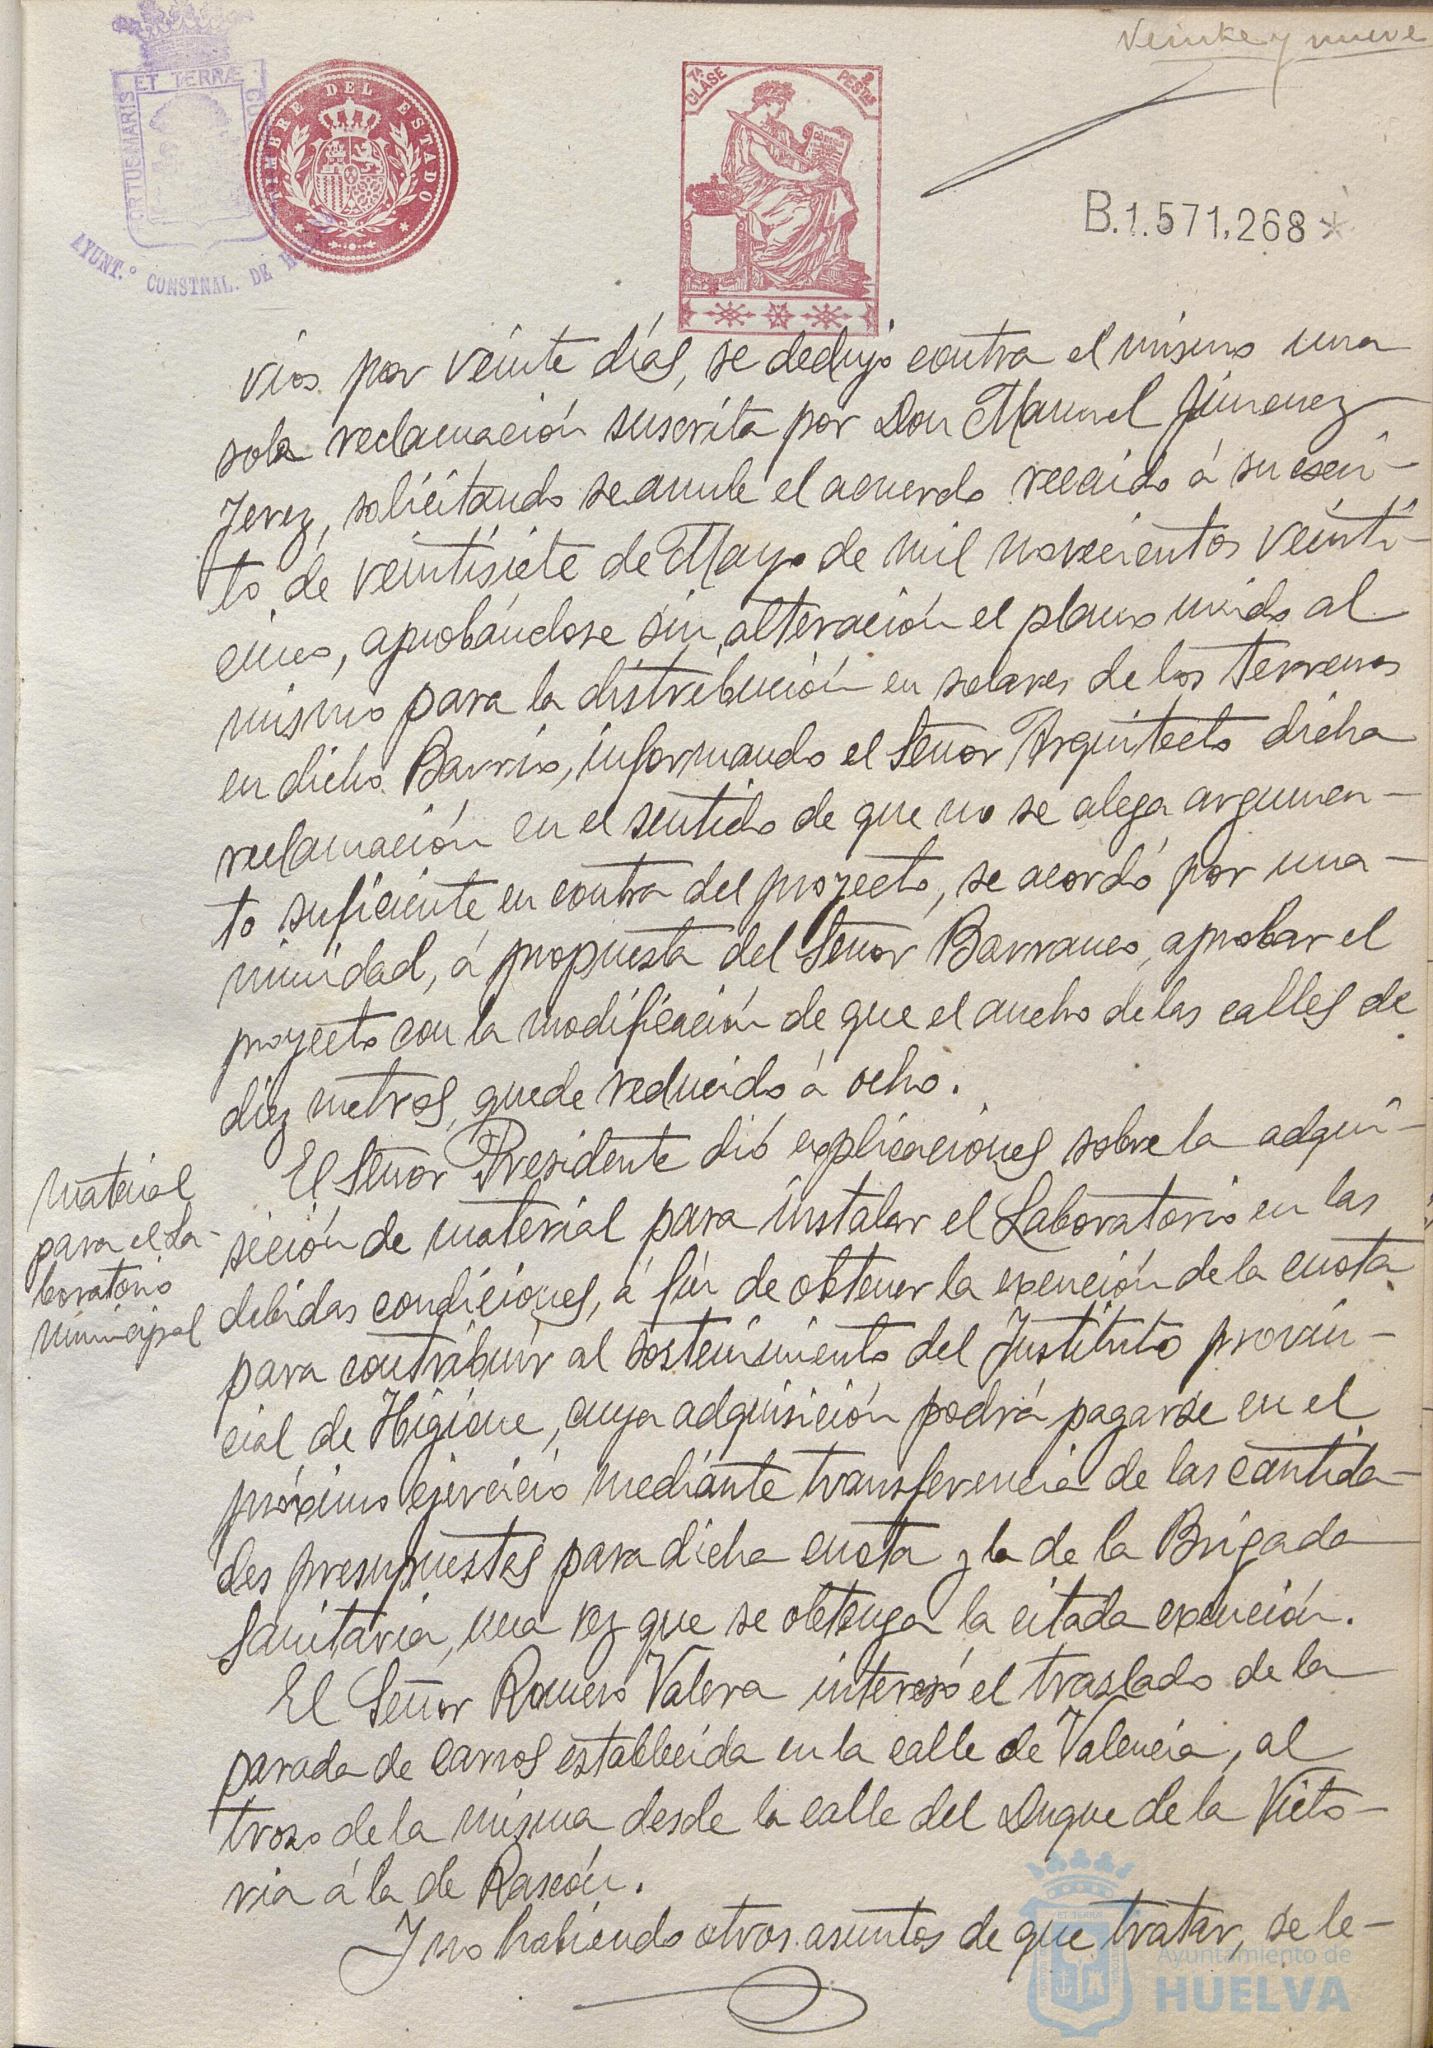 veinte y nueve
PORTUS MARIS ET TERRÆ CUSTODIA
AYUNT.º CONSTNAL. DE
TIMBRE DEL ESTADO
7ª CLASE 2 PESTAS
B.1.571,268*
vios por veinte días, se dedujo contra el mismo una
sola reclamación suscrita por Don Manuel Jimenez
Jerez, solicitando se anule el acuerdo recaido á su escri-
to de veintisiete de Mayo de mil novecientos veinti-
cinco, aprobándose sin alteración el plano unido al
mismo para la distribución en solares de los terrenos
en dicho Barrio, informando el Señor Arquitecto dicha
reclamación en el sentido de que no se alega argumen-
to suficiente en contra del proyecto, se acordó por una-
nimidad, á propuesta del Señor Barranco, aprobar el
proyecto con la modificación de que el ancho de las calles de
diez metros, quede reducido á ocho.
Material
para el La-
boratorio
municipal
El Señor Presidente dió explicaciones sobre la adqui-
sición de material para instalar el Laboratorio en las
debidas condiciones, á fin de obtener la exención de la cuota
para contribuir al sostenimiento del Instituto provin-
cial de Higiene, cuya adquisición podrá pagarse en el
próximo ejercicio mediante transferencia de las cantida-
des presupuestas para dicha cuota y la de la Brigada
Sanitaria, una vez que se obtenga la citada exención.
El Señor Romero Valera interesó el traslado de la
parada de carros establecida en la calle de Valencia, al
trozo de la misma desde la calle del Duque de la Victo-
ria á la de Rascón.
Y no habiendo otros asuntos de que tratar, se le-
Ayuntamiento de
HUELVA